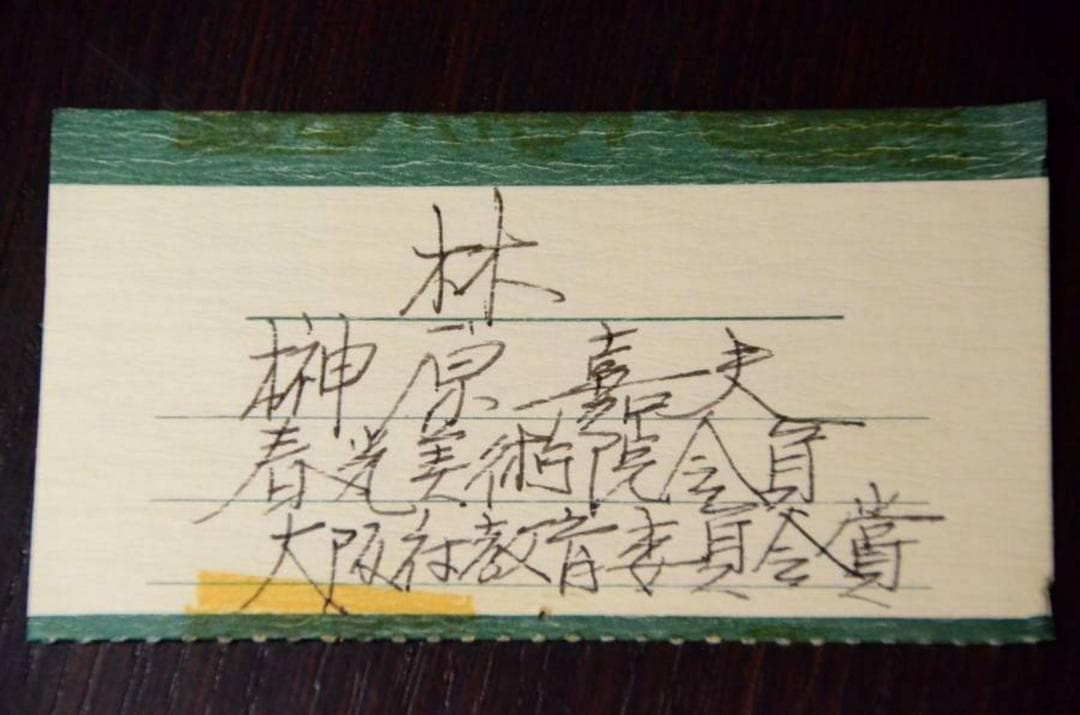 林
榊原嘉夫
春光美術院会員
大阪府教育委員会賞